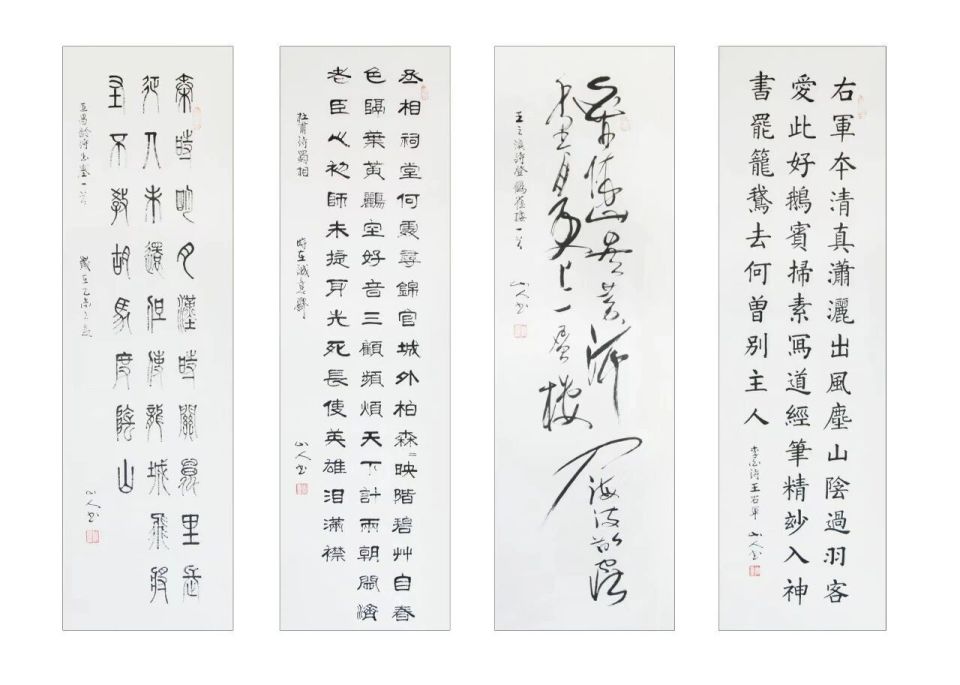 右軍夲清真瀟灑出風塵山陰過羽客
愛此好鵝賓掃素冩道經筆精玅入神
書罷籠鵞去何曽別主人
李白詩王右軍 山人書
白日依山盡黄河入海流欲窮
千里目更上一層樓
王之渙詩登鸛雀樓一首
山人書
丞相祠堂何處尋錦官城外柏森〻映階碧艸自春
色隔葉黄鸝空好音三顧頻煩天下計兩朝開濟
老臣心初師未捷身先死長使英雄泪滿襟
杜甫詩蜀相 時在誠意齋 山人書
秦時明月漢時關萬里長
征人未還但使龍城飛將
在不教胡馬度陰山
王昌齡詩出塞一首 歲在乙未之夏
山人書